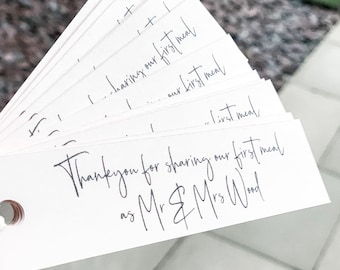 sharing our first meal
our first meal
Thankyou for sharing our first meal
as Mr & Mrs Wood